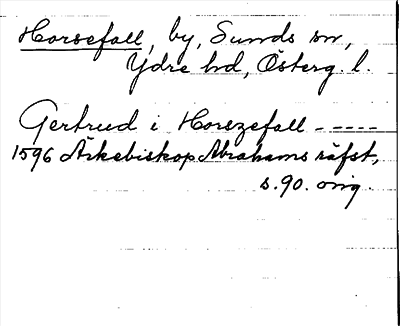 Horsefall, by, Sunds sn,
Ydre hd, Österg. l.
Gertrud i Horszefall -----
1596 Ärkebiskop Abrahams räfst,
s. 90. orig.